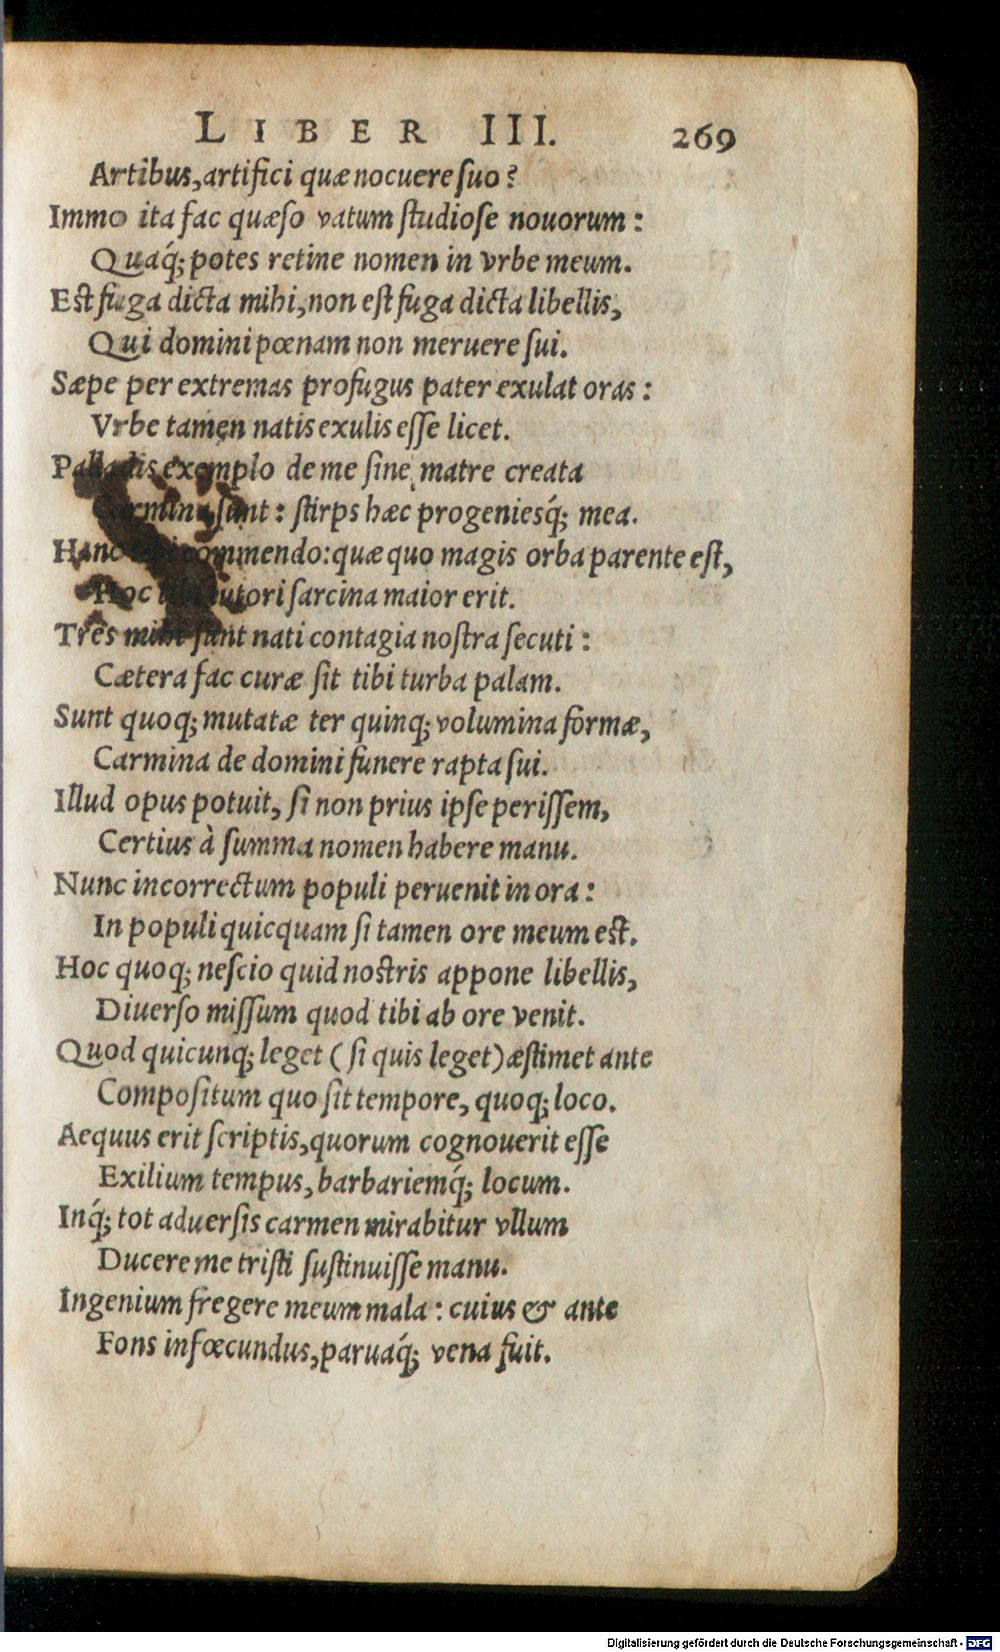 LIBER III. 269
Artibus, artifici quæ nocuere suo?
Immo ita fac quæso vatum studiose nouorum:
Quaq́; potes retine nomen in vrbe meum.
Est fuga dicta mihi, non est fuga dicta libellis,
Qui domini pœnam non meruere sui.
Sæpe per extremas profugus pater exulat oras:
Vrbe tamen natis exulis esse licet.
Palladis exemplo de me sine matre creata
Carmina sunt: stirps hæc progeniesq́; mea.
Hanc commendo: quæ quo magis orba parente est,
Hoc tutori sarcina maior erit.
Tres mihi sunt nati contagia nostra secuti:
Cætera fac curæ sit tibi turba palam.
Sunt quoq; mutatæ ter quinq; volumina formæ,
Carmina de domini funere rapta sui.
Illud opus potuit, si non prius ipse perissem,
Certius à summa nomen habere manu.
Nunc incorrectum populi peruenit in ora:
In populi quicquam si tamen ore meum est.
Hoc quoq; nescio quid nostris appone libellis,
Diuerso missum quod tibi ab ore venit.
Quod quicunq; leget (si quis leget) æstimet ante
Compositum quo sit tempore, quoq; loco.
Aequus erit scriptis, quorum cognouerit esse
Exilium tempus, barbariemq́; locum.
Inq́; tot aduersis carmen mirabitur vllum
Ducere me tristi sustinuisse manu.
Ingenium fregere meum mala: cuius & ante
Fons infœcundus, paruaq́; vena fuit.
Digitalisierung gefördert durch die Deutsche Forschungsgemeinschaft - DFG